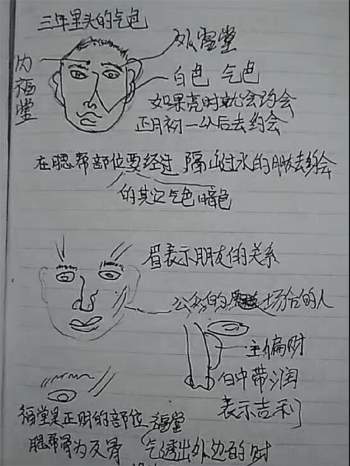 三年里头的气色
外福堂
内福堂
白色 气色
如果亮时就会约会
正月初一以后去约会
在腮帮部位要经过隔山过水的
的其它气色暗色
眉表示朋友的关系
公务的场合的人
主偏财
白中带润
表示吉利
福堂是正财的部位 福堂
腮帮骨为反骨 气透出外边的财